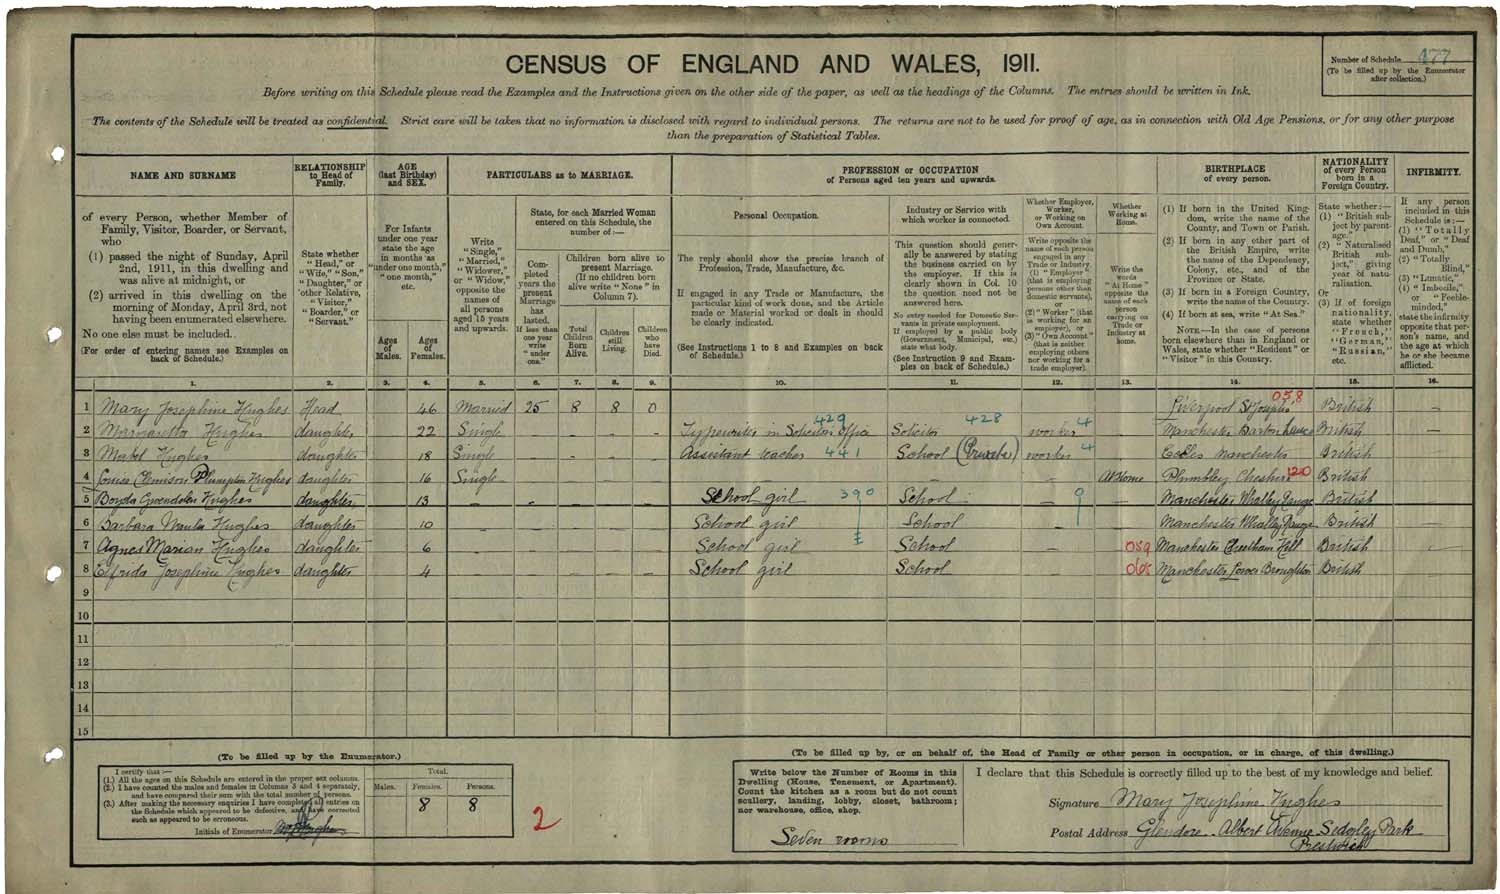 CENSUS OF ENGLAND AND WALES, 1911.
Number of Schedule 177
(To be filled up by the Enumerator
after collection.)
Before writing on this Schedule please read the Examples and the Instructions given on the other side of the paper, as well as the headings of the Columns. The entries should be written in Ink.
The contents of the Schedule will be treated as confidential. Strict care will be taken that no information is disclosed with regard to individual persons. The returns are not to be used for proof of age, as in connection with Old Age Pensions, or for any other purpose
than the preparation of Statistical Tables.
NAME AND SURNAME
RELATIONSHIP
to Head of
Family.
AGE
(last Birthday)
and SEX.
PARTICULARS as to MARRIAGE.
PROFESSION or OCCUPATION
of Persons aged ten years and upwards.
BIRTHPLACE
of every person.
NATIONALITY
of every Person
born in a
Foreign Country.
INFIRMITY.
of every Person, whether Member of
Family, Visitor, Boarder, or Servant,
who
(1) passed the night of Sunday, April
2nd, 1911, in this dwelling and
was alive at midnight, or
(2) arrived in this dwelling on the
morning of Monday, April 3rd, not
having been enumerated elsewhere.
No one else must be included.
(For order of entering names see Examples on
back of Schedule.)
State whether
"Head," or
"Wife," "Son,"
"Daughter," or
other Relative,
"Visitor,"
"Boarder," or
"Servant."
For Infants
under one year
state the age
in months as
"under one month,"
"one month,"
etc.
Ages
of
Males.
Ages
of
Females.
Write
"Single,"
"Married,"
"Widower,"
or "Widow,"
opposite the
names of
all persons
aged 15 years
and upwards.
State, for each Married Woman
entered on this Schedule, the
number of:—
Completed
years the
present
Marriage
has
lasted.
If less than
one year
write
"under
one."
Children born alive to
present Marriage.
(If no children born
alive write "None" in
Column 7).
Total
Children
Born
Alive.
Children
still
Living.
Children
who
have
Died.
Personal Occupation.
The reply should show the precise branch of
Profession, Trade, Manufacture, &c.
If engaged in any Trade or Manufacture, the
particular kind of work done, and the Article
made or Material worked or dealt in should
be clearly indicated.
(See Instructions 1 to 8 and Examples on back
of Schedule.)
Industry or Service with
which worker is connected.
This question should generally
be answered by stating
the business carried on by
the employer. If this is
clearly shown in Col. 10
the question need not be
answered here.
No entry needed for Domestic Servants
in private employment.
If employed by a public body
(Government, Municipal, etc.)
state what body.
(See Instruction 9 and Examples
on back of Schedule.)
Whether Employer,
Worker,
or Working on
Own Account.
Write opposite the
name of each person
engaged in any
Trade or Industry,
(1) "Employer"
(that is employing
persons other than
domestic servants),
or
(2) "Worker" (that
is working for an
employer), or
(3) "Own Account"
(that is neither
employing others
nor working for a
trade employer).
Whether
Working at
Home.
Write the
words
"At Home"
opposite the
name of each
person
carrying on
Trade or
Industry at
home.
(1) If born in the United Kingdom,
write the name of the
County, and Town or Parish.
(2) If born in any other part of
the British Empire, write
the name of the Dependency,
Colony, etc., and of the
Province or State.
(3) If born in a Foreign Country,
write the name of the Country.
(4) If born at sea, write "At Sea."
NOTE.—In the case of persons
born elsewhere than in England or
Wales, state whether "Resident" or
"Visitor" in this Country.
State whether:—
(1) "British subject
by parentage."
(2) "Naturalised
British subject,"
giving
year of naturalisation.
Or
(3) If of foreign
nationality,
state whether
"French,"
"German,"
"Russian,"
etc.
If any person
included in this
Schedule is:—
(1) "Totally
Deaf," or "Deaf
and Dumb,"
(2) "Totally
Blind,"
(3) "Lunatic,"
(4) "Imbecile,"
or "Feeble-minded,"
state the infirmity
opposite that person's
name, and
the age at which
he or she became
afflicted.
1. 2. 3. 4. 5. 6. 7. 8. 9. 10. 11. 12. 13. 14. 15. 16.
058
1 Mary Josephine Hughes Head 46 Married 25 8 8 0 Liverpool St Josephs British —
429 428 4
2 Margaretta Hughes daughter 22 Single – – – – Typewriter in Solicitors Office Solicitor worker – Manchester Barton British –
3 Mabel Hughes daughter 18 Single – – – – Assistant teacher 441 School (Private) worker 4 Eccles Manchester British –
4 Plumpton Hughes daughter 16 Single – – At Home Plumbley Cheshire 120 British –
5 Gwendolen Hughes daughter 13 – School girl 390 School 9 Manchester Whalley Range British
6 Barbara Hughes daughter 10 – School girl School Manchester Whalley Range British –
7 Agnes Marian Hughes daughter 6 – School girl School – 059 Manchester Cheetham Hill British –
8 Elfrida Josephine Hughes daughter 4 – School girl School – Manchester Lower Broughton British
9
10
11
12
13
14
15
(To be filled up by the Enumerator.)
I certify that:—
(1.) All the ages on this Schedule are entered in the proper sex columns.
(2.) I have counted the males and females in Columns 3 and 4 separately,
and have compared their sum with the total number of persons.
(3.) After making the necessary enquiries I have completed all entries on
the Schedule which appeared to be defective, and have corrected
such as appeared to be erroneous.
Initials of Enumerator
Total.
Males. Females. Persons.
8 8
2
(To be filled up by, or on behalf of, the Head of Family or other person in occupation, or in charge, of this dwelling.)
Write below the Number of Rooms in this
Dwelling (House, Tenement, or Apartment).
Count the kitchen as a room but do not count
scullery, landing, lobby, closet, bathroom;
nor warehouse, office, shop.
Seven rooms
I declare that this Schedule is correctly filled up to the best of my knowledge and belief.
Signature Mary Josephine Hughes
Postal Address Glendore Albert Avenue Sedgley Park
Prestwich